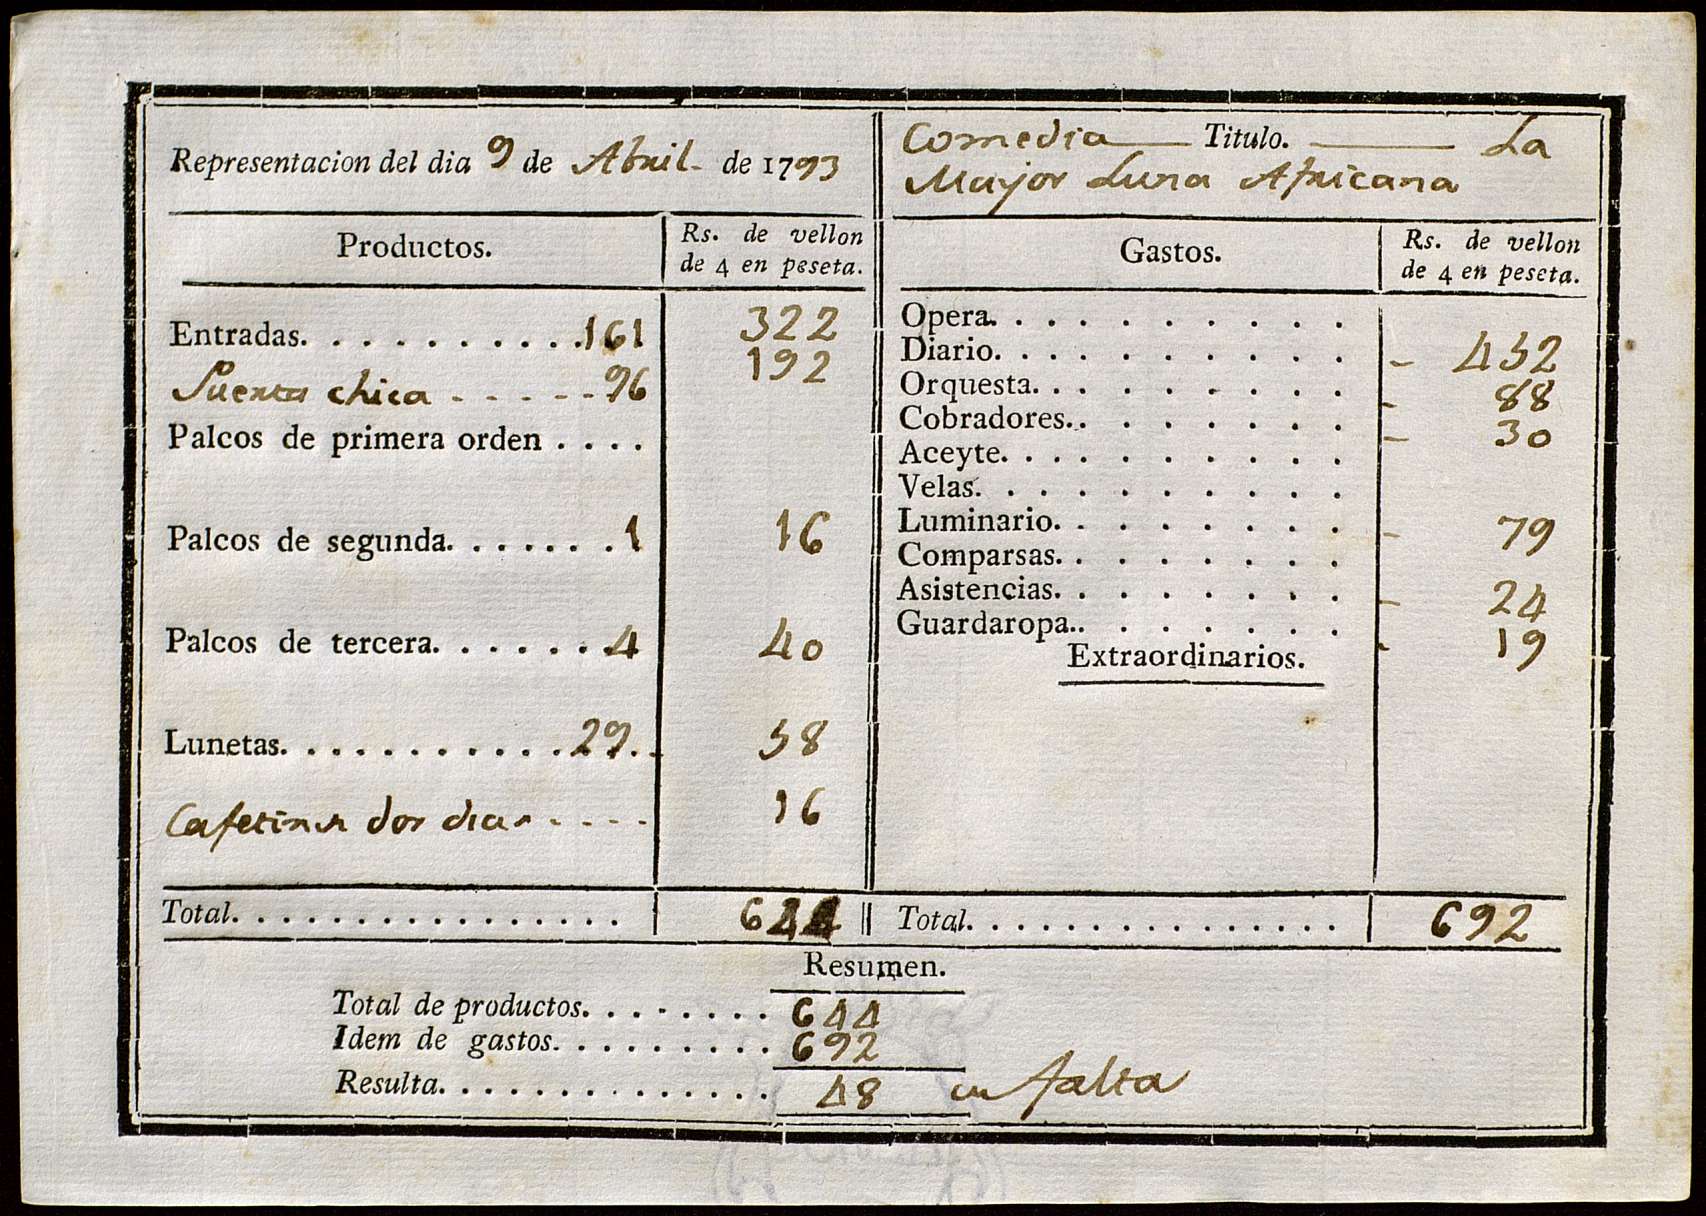 Representacion del dia 9 de Abril de 1793
Comedia Titulo. La
Mayor Luna Africana
Productos. Rs. de vellon
de 4 en peseta.
Entradas. . . . . . . . . . 161 322
Puerta chica - - - - - 96 192
Palcos de primera orden . . . .
Palcos de segunda. . . . . . . 1 16
Palcos de tercera. . . . . . . 4 40
Lunetas. . . . . . . . . . . 29. 58
dos dias - - - - 16
Total. . . . . . . . . . . . . . . . 644
Gastos. Rs. de vellon
de 4 en peseta.
Opera. . . . . . . . . . .
Diario. . . . . . . . . . . - 452
Orquesta. . . . . . . . . - 88
Cobradores. . . . . . . . - 30
Aceyte. . . . . . . . . . .
Velas. . . . . . . . . . .
Luminario. . . . . . . . - 79
Comparsas. . . . . . . .
Asistencias. . . . . . . . - 24
Guardaropa. . . . . . . . - 19
Extraordinarios.
Total. . . . . . . . . . . . . . . . 692
Resumen.
Total de productos. . . . . . . . 644
Idem de gastos. . . . . . . . . 692
Resulta. . . . . . . . . . . . . . 48 en falta